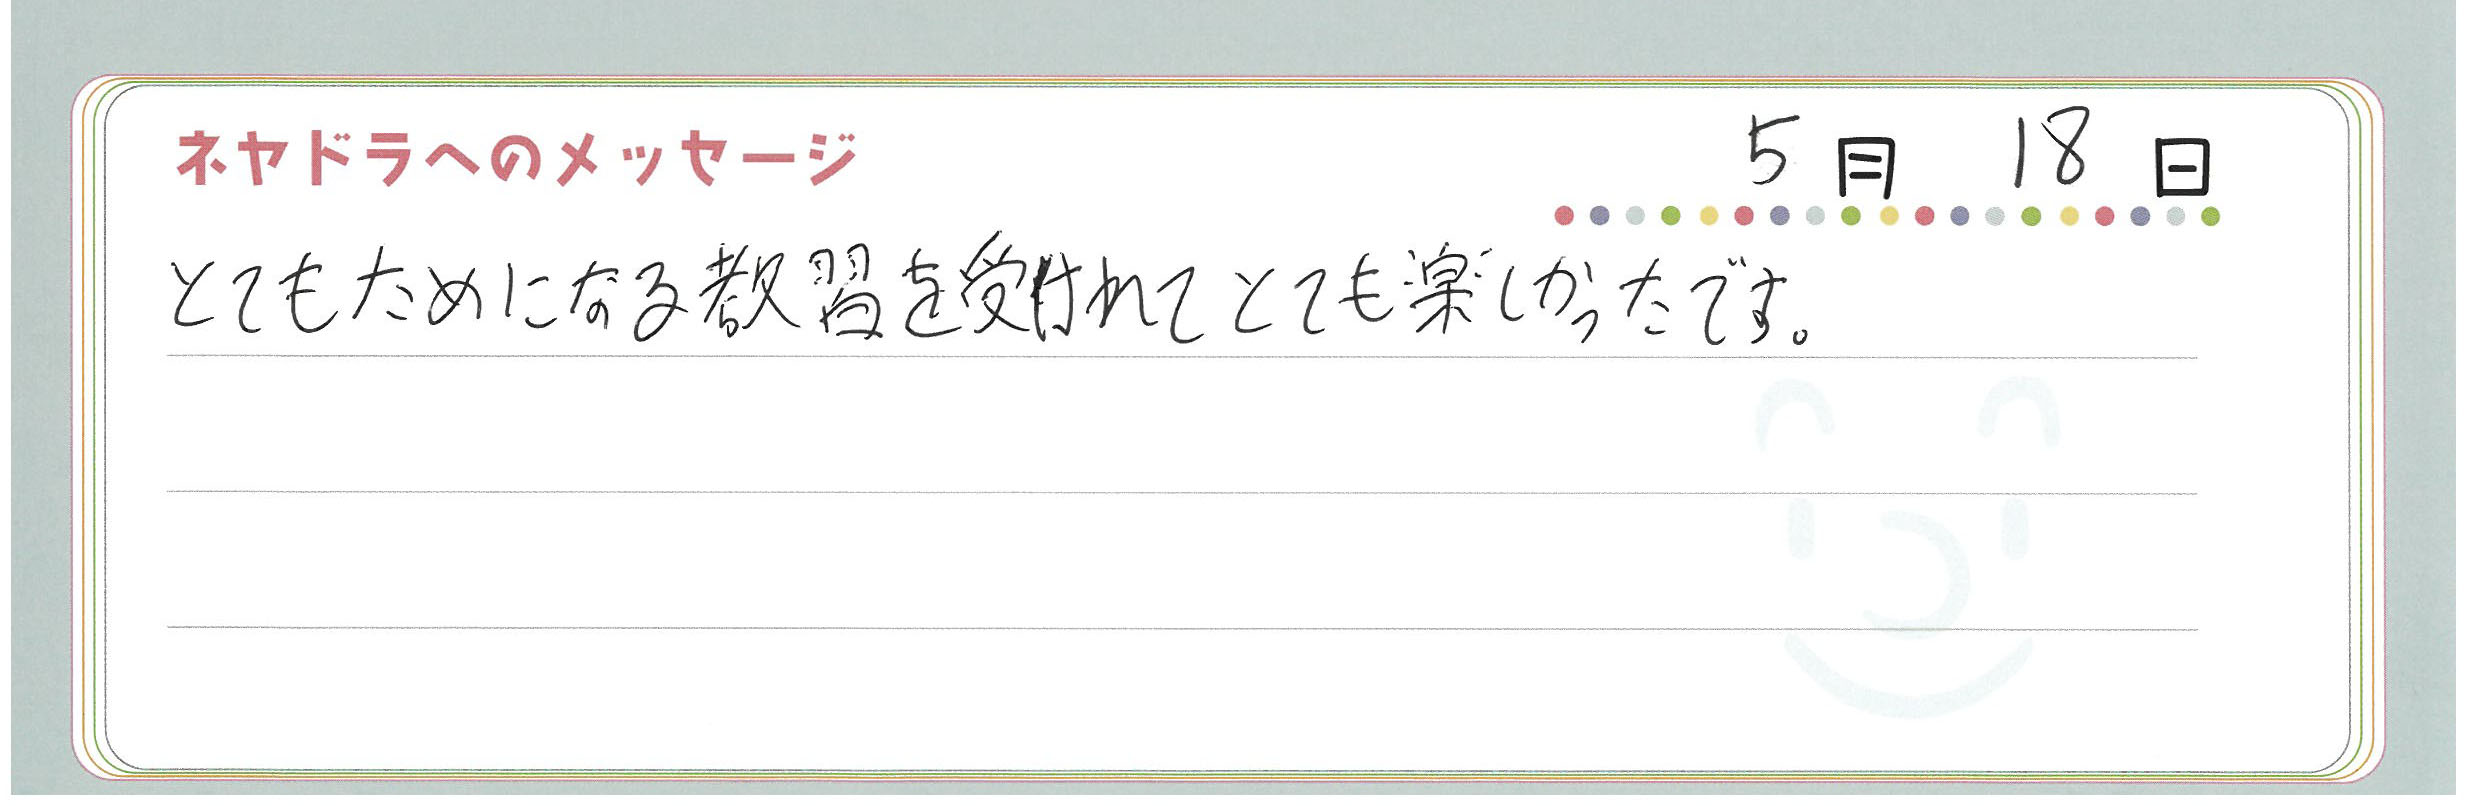 ネヤドラへのメッセージ
5月 18日
とてもためになる教習を受けれてとても楽しかったです。